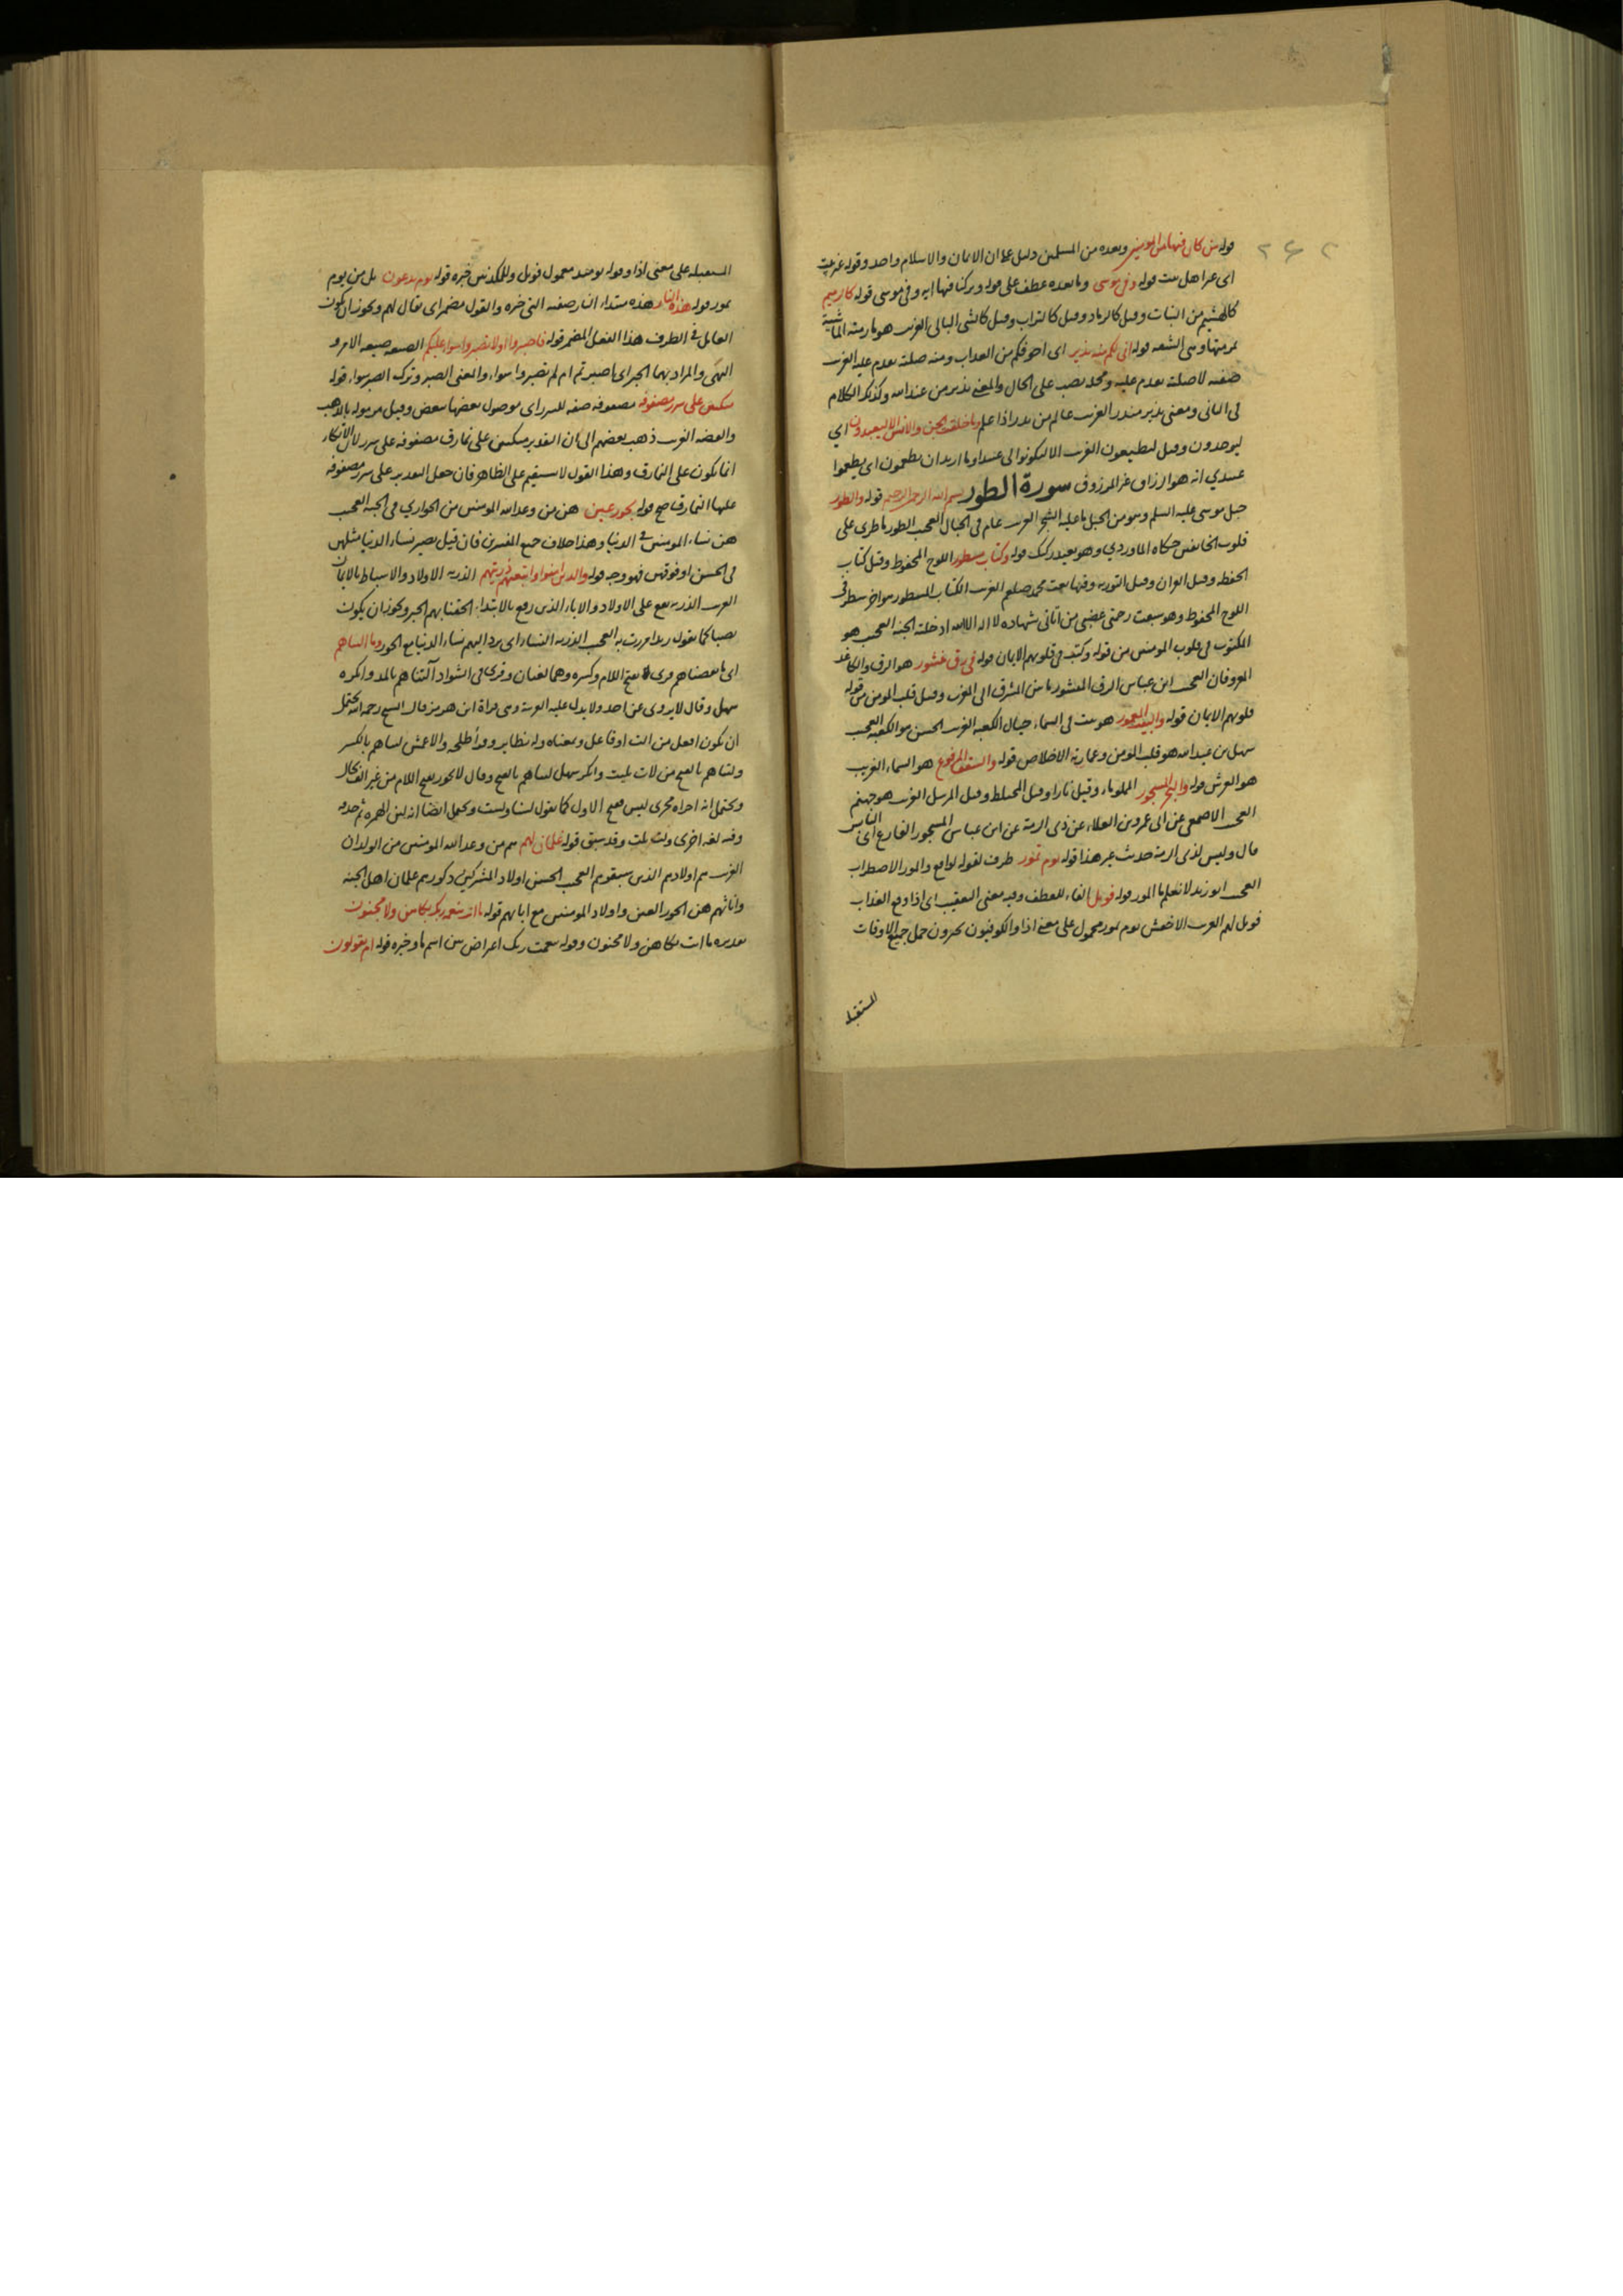 ٢٤٢
قوله من كان فيها من المومنين وبعده من المسلمين دليل على ان الايمان والاسلام واحد وقوله غير بيت
اى غير اهل بيت قوله وفي موسى وما بعده عطف على قوله وتركنا فيها اية وفي موسى قوله كالرميم
كالهشيم من النبات وقيل كالرماد وقيل كالتراب وقيل كالشى البالى الغريب هو ما رمته الماشية
بمرمتها وهى الشفه قوله انى لكم منه نذير اى اخوفكم من العذاب ومنه صلته تقدم عليه الغريب
صفه لا صلته تقدم عليه ومحله نصب على الحال والمعنى نذير من عند الله وكذلك الكلام
فى الثانى ومعنى نذير منذر الغريب عالم من نذر اذا علم وما خلقت الجن والانس الا ليعبدون اي
ليوحدون وقيل ليطيعون الغريب الا ليكونوا لى عبيدا وما اريد ان يطعمون اى يطعموا
عبيدي انه هو الرزاق غير المرزوق سورة الطور بسم الله الرحمن الرحيم قوله والطور
جبل موسى عليه السلم وهو من الجبل ما عليه الشجر الغريب عام فى الجبال العجيب الطور ما طرى على
قلوب الخائفين حكاه الماوردي وهو بعيد ركيك قوله وكتاب مسطور اللوح المحفوظ وقيل كتاب
الحفظه وقيل القران وقيل التوريه وفيها نعت محمد صلعم الغريب الكتاب المسطور هو اخر سطر فى
اللوح المحفوظ وهو سبقت رحمتى غضبى من اتانى بشهاده لا اله الا الله ادخلته الجنه العجيب هو
المكتوب فى قلوب المومنين من قوله وكتب فى قلوبهم الايمان قوله فى رق منشور هو الرق والكاغد
المعروفان العجيب ابن عباس الرق المنشور ما بين المشرق الى المغرب وقيل قلب المومن من قوله
قلوبهم الايمان قوله والبيت المعمور هو بيت فى السماء حيال الكعبه الغريب الحسن هو الكعبه العجيب
سهل بن عبد الله هو قلب المومن وعمارته الاخلاص قوله والسقف المرفوع هو السماء الغريب
هو العرش قوله والبحر المسجور المملو ماء وقيل نارا وقيل المختلط وقيل المرسل الغريب هو جهنم
العجيب الاصمعى عن ابى عمرو بن العلاء عن ذى الرمة عن ابن عباس المسجور الفارغ اى الناس
قال وليس لذى الرمة حديث غير هذا قوله يوم تمور ظرف لقوله لواقع والمور الاضطراب
العجيب ابو زيد لا نعلم ما المور قوله فويل الفاء للعطف وفيه معنى التعقيب اى اذا وقع العذاب
فويل لهم الغريب الاخفش يوم تمور محمول على معنى اذا والكوفيون يجرون حمل جميع الاوقات
المستقبله
المستقبله على معنى اذا وقوله يومئذ معمول فويل وللمكذبين خبره قوله يوم يدعون بدل من يوم
تمور قوله هذه النار هذه مبتداء النار صفته التى خبره والقول مضمر اى يقال لهم ويجوز ان يكون
العامل فى الظرف هذا الفعل المضمر قوله فاصبروا او لا تصبروا سواء عليكم الصيغه صيغه الامر و
النهى والمراد بهما الخبر اى ما صبرتم ام لم تصبروا سواء والمعنى الصبر وترك الصبر سواء قوله
متكئين على سرر مصفوفه مصفوفه صفه للسرر اى موصول بعضها ببعض وقيل مرموله بالذهب
والفضه الغريب ذهب بعضهم الى ان التقدير متكئين على نمارق مصفوفه على سرر لان الاتكاء
انما يكون على النمارق وهذا القول لا يستقيم على الظاهر فان جعل التقدير على سرر مصفوفه
عليها النمارق صح قوله بحور عين هن من وعد الله المومنين من الجواري فى الجنه العجيب
هن نساء المومنين فى الدنيا وهذا خلاف جميع المفسرين فان قيل يصير نساء الدنيا مثلهن
فى الحسن او فوقهن فهو وجه قوله والذين امنوا واتبعتهم ذريتهم الذريه الاولاد والاسباط بالايمان
الغريب الذريه يقع على الاولاد والاباء الذين رفع بالابتداء الحقنا بهم الخبر ويجوز ان يكون
نصبا كما تقول زيدا مررت به العجيب الذريه النساء اى يرد اليهم نساء الدنيا مع الحور وما التناهم
اى ما نقصناهم قرى بفتح اللام وكسره وهما لغتان وقرى فى الشواذ آلتناهم بالمد وانكره
سهل وقال لا يروى عن احد ولا يدل عليه العربية وهى قراة ابن هرمز قال الشيخ رحمه الله يحتمل
ان يكون افعل من الت او فاعل ومعناه وله نظاير وقرأ طلحه والاعمش لتناهم بالكسر
ولتناهم بالفتح من لات يليت وانكر سهل لتناهم بالفتح وقال لا يجوز بفتح اللام من غير الف بحال
ويحتمل انه اجراه مجرى ليس ففتح الاول كما تقول لسنا ولست ويحتمل ايضا انه لين الهمزه ثم حذفه
وفيه لغه اخرى ولت يلت وقد سبق قوله غلمان لهم هم من وعد الله المومنين من الولدان
الغريب هم اولادهم الذين سبقوهم العجيب الحسن اولاد المشركين ذكورهم غلمان اهل الجنه
واناثهم هن الحور العين واولاد المومنين مع ابائهم قوله ما انت بنعمة ربك بكاهن ولا مجنون
تقديره ما انت بكاهن ولا مجنون وقوله بنعمت ربك اعراض بين اسم ما وخبره قوله ام يقولون